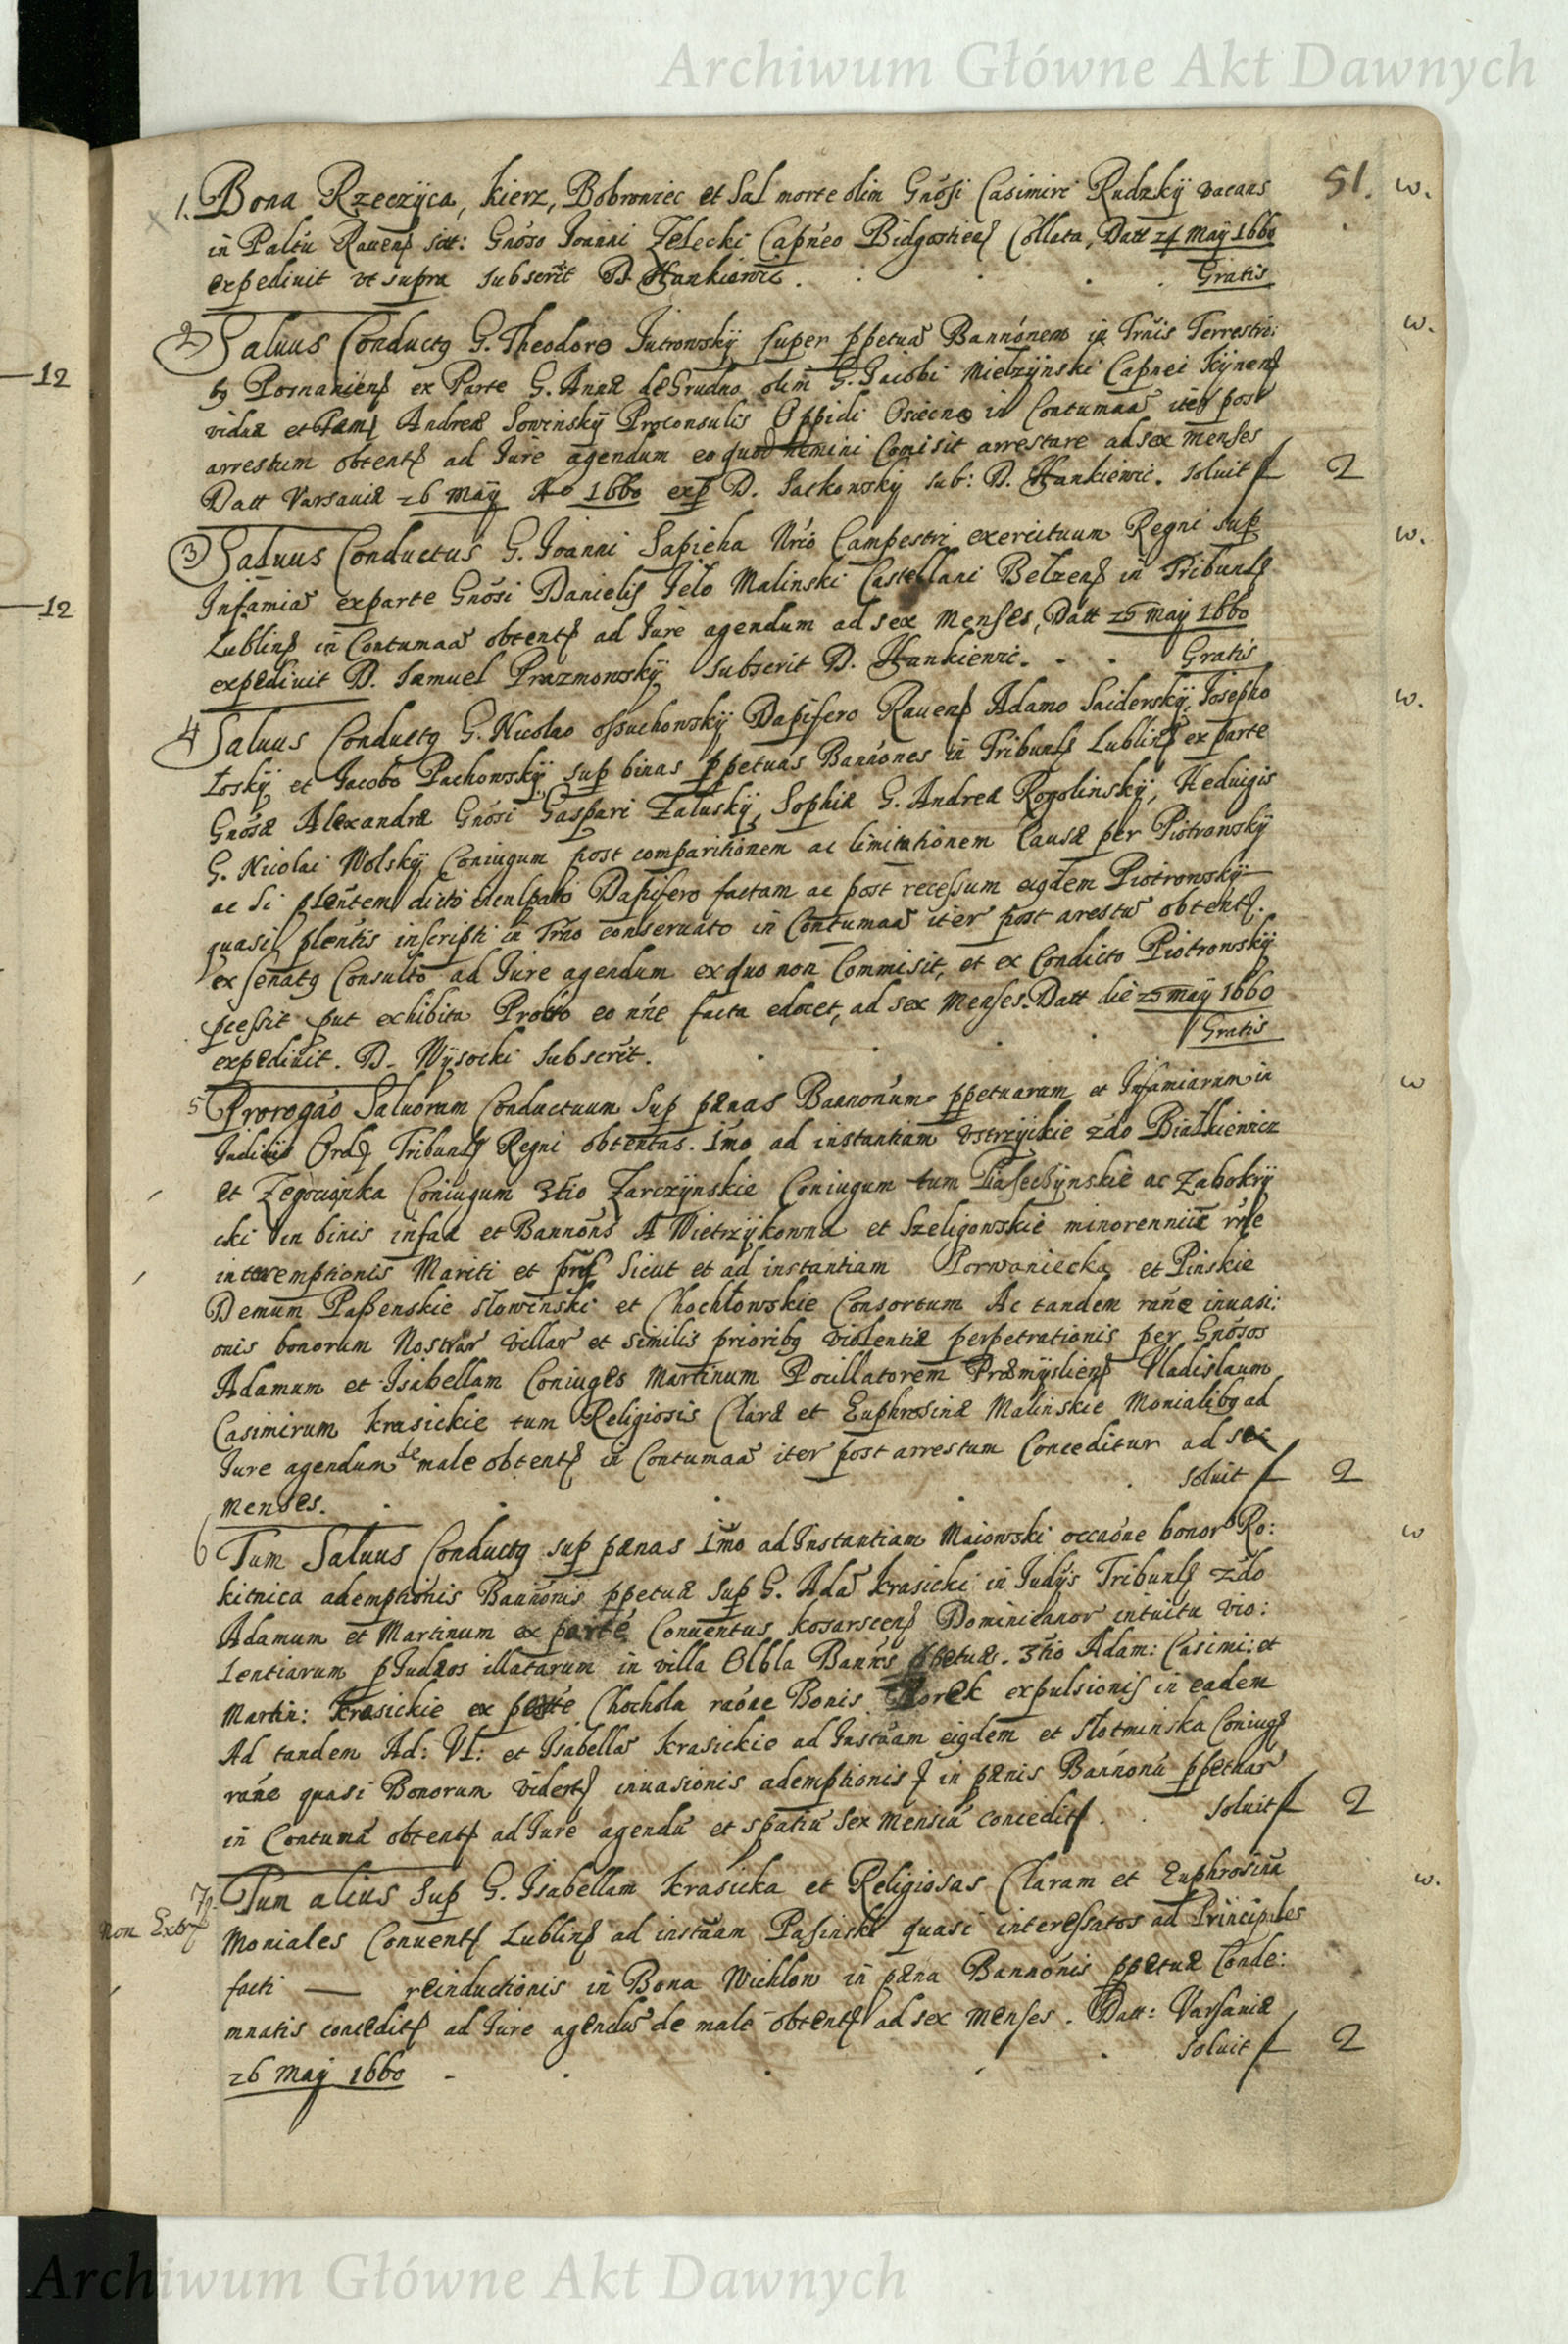 Archiwum Główne Akt Dawnych
51.
1. Bona Rzeczÿca, kierz, Bobrowiec et Sal morte olim Gnosi Casimiri Rudzkÿ vacans w.
in Paltu Rauens sit: Gnoso Joanni Zelecki Capneo Bidgostiens Collata, Datt 24 Maÿ 1660
expediuit vt supra Subscrit D. Hankiewic. Gratis
2 Saluus Conductg G. Theodoro Jutrowskÿ super ppetua Bannonem in Trnis Terrestri: w.
bg Posnaniens ex Parte G. Anna de Grudno olim G. Jacobi Mielzÿnski Capnei Kÿnens
vidua et Andrea Sowinskÿ Proconsulis Oppidi Osiecno in Contumaa iter post
arrestum obtents ad Jure agendum eo quod nemini Comisit arrestare ad sex menses
Datt Varsauia 26 Maÿ Ao 1660 exp D. Saskowskÿ sub: D. Hankiewic. Soluit f 2
3 Saluus Conductus G. Joanni Sapieha Nrio Campestri exercituum Regni sup w.
Infamia exparte Gnosi Danielis Jelo Malinski Castellani Belzens in Tribunls
Lublins in Contumaa obtents ad Jure agendum ad sex Menses, Datt 25 Maÿ 1660
expediuit D. Samuel Prazmowskÿ Subscrit D. Hankiewic. Gratis
4 Saluus Conductg G. Nicolao Ossuchowskÿ Dapifero Rauens Adamo Saiderskÿ, Josepho w.
Loskÿ et Jacobo Pachowskÿ sup binas ppetuas Bannones in Tribunls Lublins ex parte
Gnosa Alexandra Gnosi Gaspari Zaluskÿ, Sophia G. Andrea Rogolinskÿ, Heduigis
G. Nicolai Wolskÿ Coniugum post comparitionem ac limitationem Causa per Piotrowskÿ
ac si plentem dicto inculpato Dapifero factam ac post recessum eigdem Piotrowskÿ
quasi plentis inscripti in Trno conseruato in Contumaa iter post arestu obtents.
ex senatg Consulto ad Jure agendum ex quo non Commisit, et ex Condicto Piotrowskÿ
pcessit put exhibita Probo eo nne facta edocet, ad sex Menses. Datt die 25 Maÿ 1660
expediuit. D. Wÿsocki Subscrit. Gratis
5 Prorogao Saluorum Conductuum Sup panas Bannonum ppetuarum et Infamiarum in w
Judicijs Ord Tribunls Regni obtentas. 1mo ad instantiam Vstrzÿckie 2do Bialkiewicz
et Zegocianka Coniugum 3tio Zarczÿnskie Coniugum tum Piasechÿnskie ac Zabokrÿ
cki in binis infaa et Bannons A Wietrzÿkowna et Szeligowskie minorenniu rne
interemptionis Mariti et pris Sicut et ad instantiam Porwaniecka et Pinskie
Demum Passenskie Slowinski et Chochlowskie Consortum Ac tandem rane inuasi:
onis bonorum Nostrar villar et similis prioribg violentia perpetrationis per Gnosos
Adamum et Isabellam Coniuges Martinum Pocillatorem Præmÿsliens Vladislaum
Casimirum Krasickie tum Religiosis Clara et Euphrosina Malinskie Monialibg ad
Jure agendum de male obtents in Contumaa iter post arrestum Conceditur ad sex
menses. Soluit f 2
6 Tum Saluus Conductg sup panas 1mo ad Instantiam Maiowski occaone bonor Ro: w
kitnica ademptionis Bannonis ppetua Sup G. Ada Krasicki in Judÿs Tribunls 2do
Adamum et Martinum ex parte Conuentus Kosarscens Dominicanor intuitu vio:
lentiarum p Judæos illatarum in villa Olbla Banns ppetuæ. 3tio Adam: Casimi: et
Martin: Krasickie ex parte Chochola raone Bonis expulsionis in eadem
Ad tandem Ad: Vl: et Isabella Krasickie ad Instaam eigdem et Slotminska Coniugs
rane quasi Bonorum inuasionis ademptionis in pænis Bannonu ppetuar
in Contuma obtents ad Jure agendu et spatiu Sex Mensiu concedits. Soluit f 2
7. Tum alius Sup G. Isabellam Krasicka et Religiosas Claram et Euphrosina w.
non Extr
Moniales Conuents Lublins ad instaam Pasinski quasi interessatos ad Principales
facti — reinductionis in Bona Wichlow in pæna Bannonis ppetua Conde:
mnatis concedits ad Jure agendu de male obtents ad sex menses. Datt: Varsauiæ
26 Maÿ 1660 Soluit f 2
12
12
Archiwum Główne Akt Dawnych